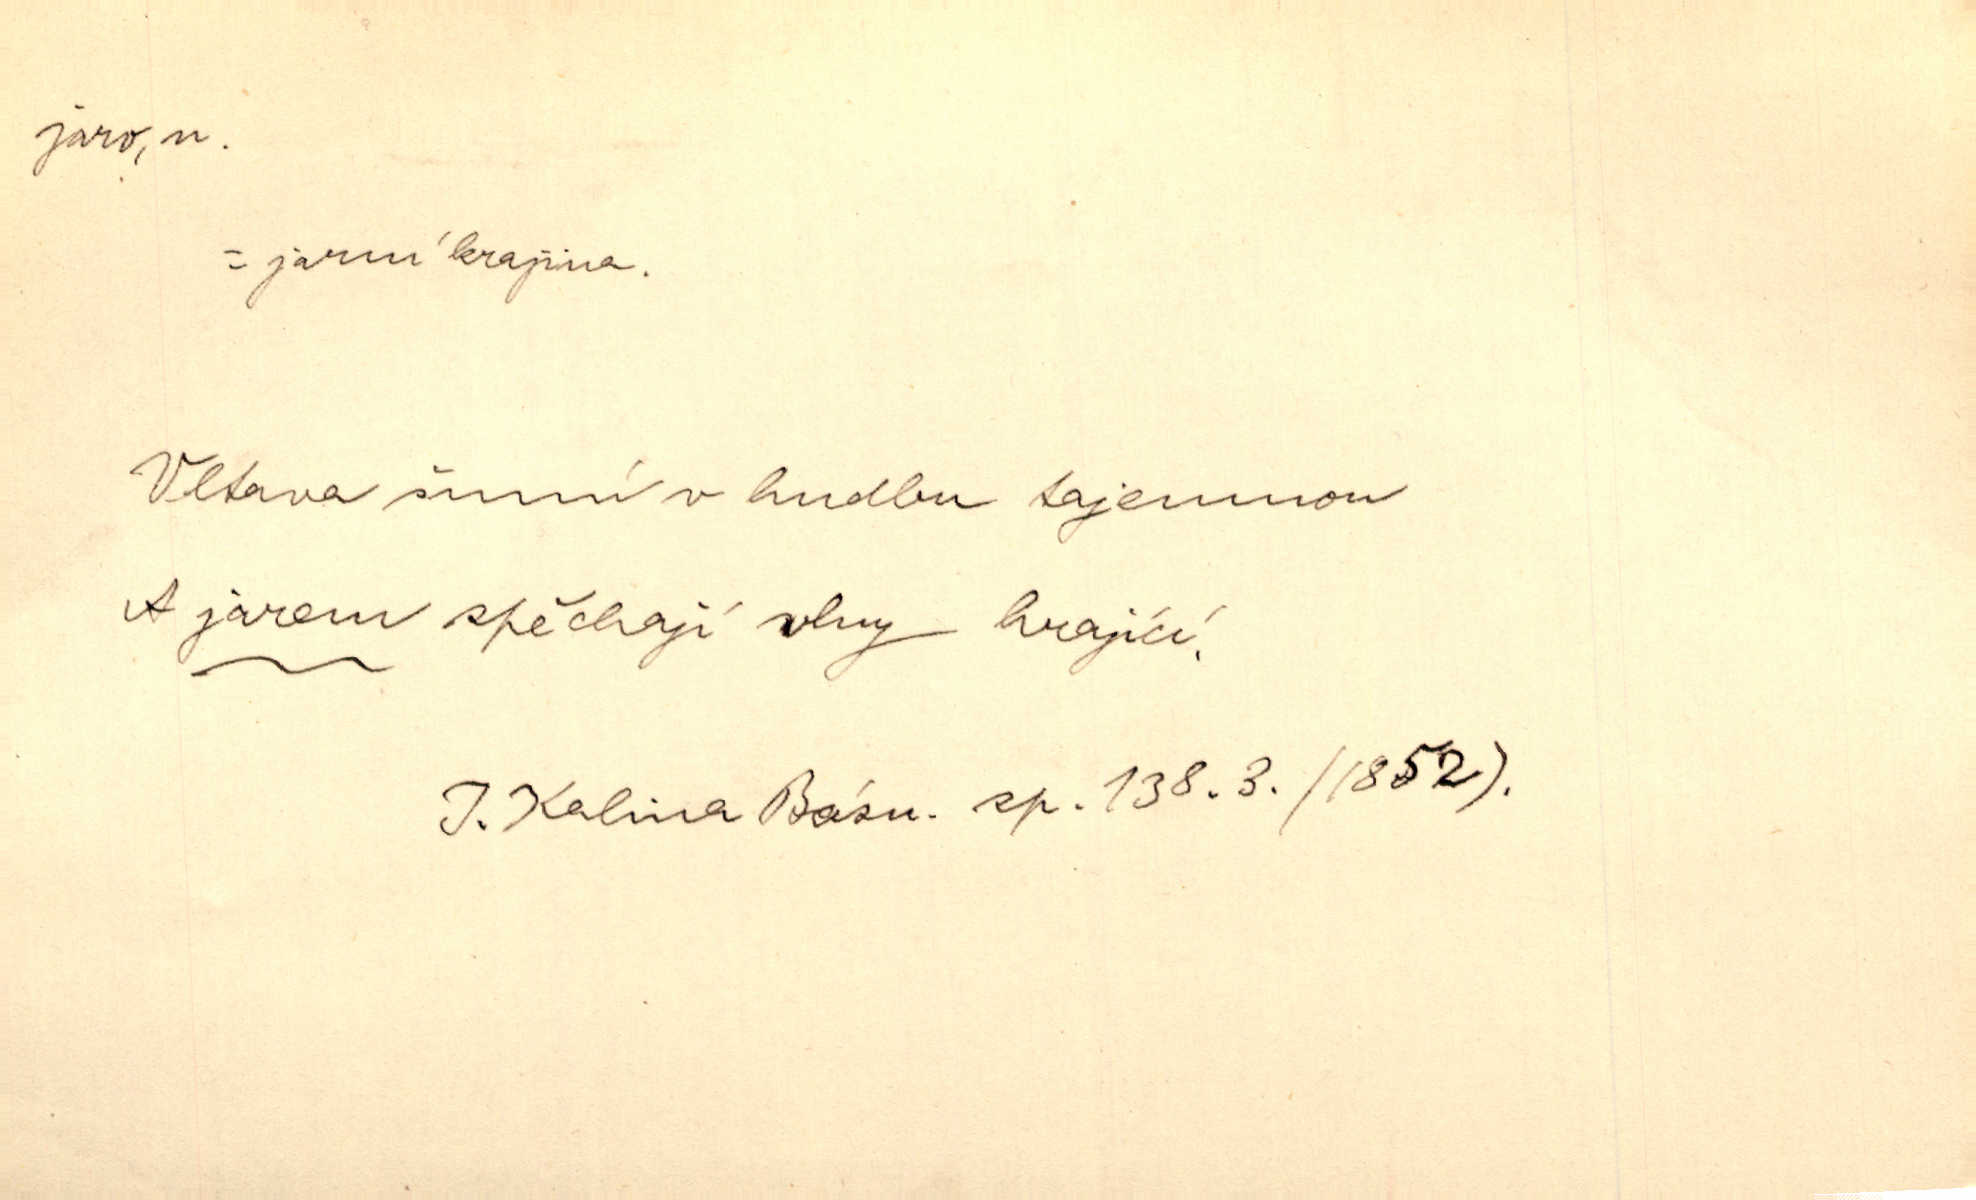 jaro, n.
= jarní krajina.
Vltava šumí v hudbu tajemnou
A jarem spěchají vlny hrající.
J. Kalina Básn. sp. 138. 3. (1852).